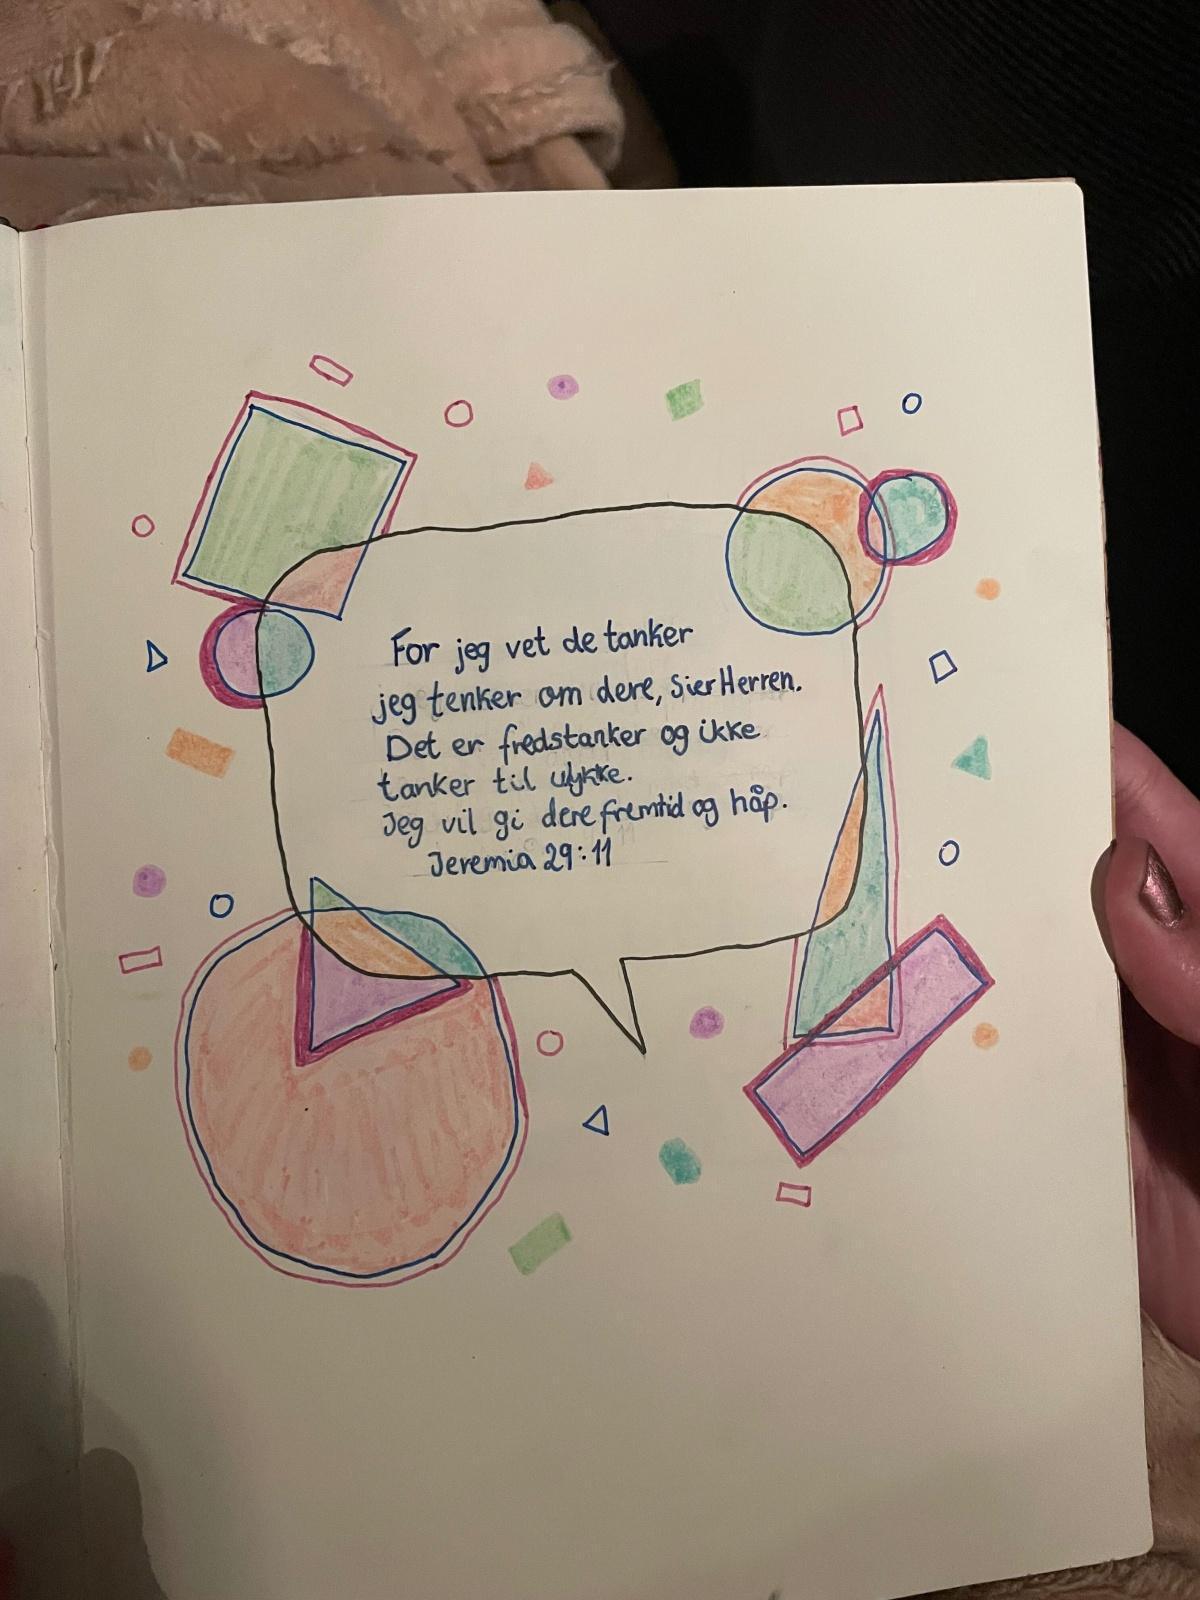 For jeg vet de tanker
jeg tenker om dere, sier Herren.
Det er fredstanker og ikke
tanker til ulykke.
Jeg vil gi dere fremtid og håp.
Jeremia 29:11